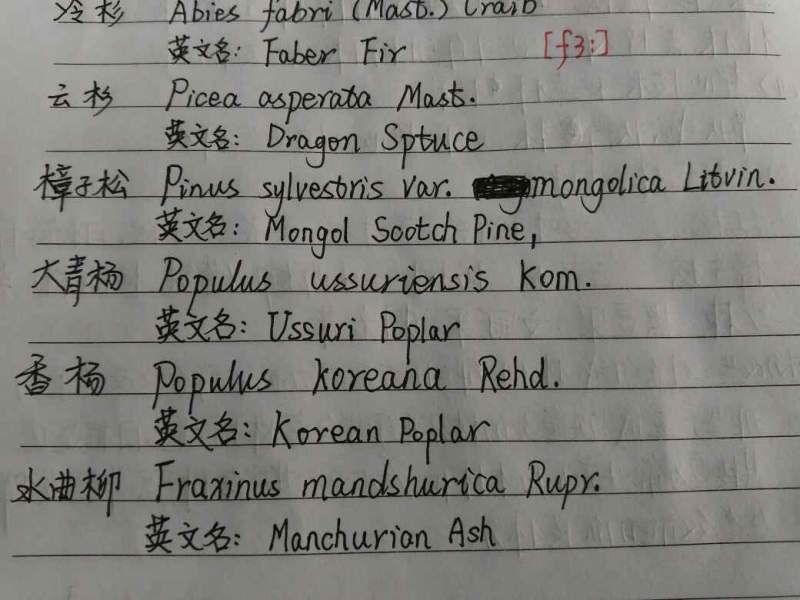 冷杉 Abies fabri (Mast.) Craib
英文名: Faber Fir [fɜ:]
云杉 Picea asperata Mast.
英文名: Dragon Sptuce
樟子松 Pinus sylvestris var. mongolica Litvin.
英文名: Mongol Scotch Pine,
大青杨 Populus ussuriensis Kom.
英文名: Ussuri Poplar
香杨 Populus koreana Rehd.
英文名: Korean Poplar
水曲柳 Fraxinus mandshurica Rupr.
英文名: Manchurian Ash